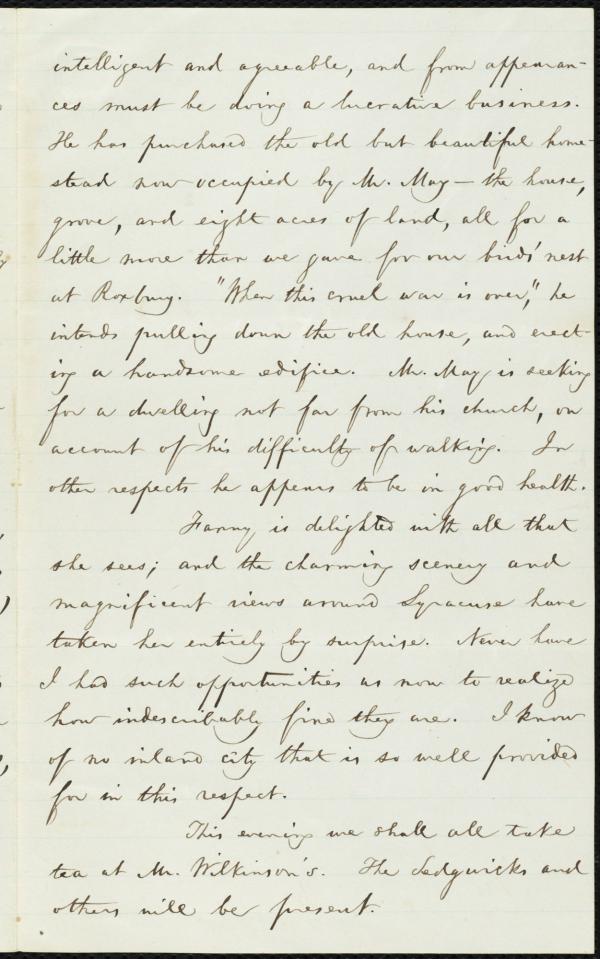 intelligent and agreeable, and from appearan-
ces must be doing a lucrative business.
He has purchased the old but beautiful home-
stead now occupied by Mr. May — the house,
grove, and eight acres of land, all for a
little more than we gave for our birds' nest
at Roxbury. "When this cruel war is over," he
intends pulling down the old house, and erect-
ing a handsome edifice. Mr. May is seeking
for a dwelling not far from his church, on
account of his difficulty of walking. In
other respects he appears to be in good health.
Fanny is delighted with all that
she sees; and the charming scenery and
magnificent views around Syracuse have
taken her entirely by surprise. Never have
I had such opportunities as now to realize
how indescribably fine they are. I know
of no inland city that is so well provided
for in this respect.
This evening we shall all take
tea at Mr. Wilkinson's. The Sedgwicks and
others will be present.